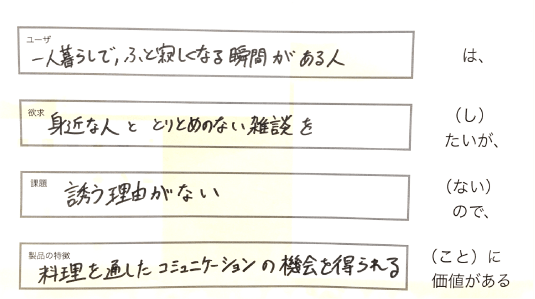 ユーザ
一人暮らしで,ふと寂しくなる瞬間がある人
は、
欲求
身近な人と とりとめのない雑談を
（し）
たいが、
課題
誘う理由がない
（ない）
ので、
製品の特徴
料理を通したコミュニケーションの機会を得られる
（こと）に
価値がある